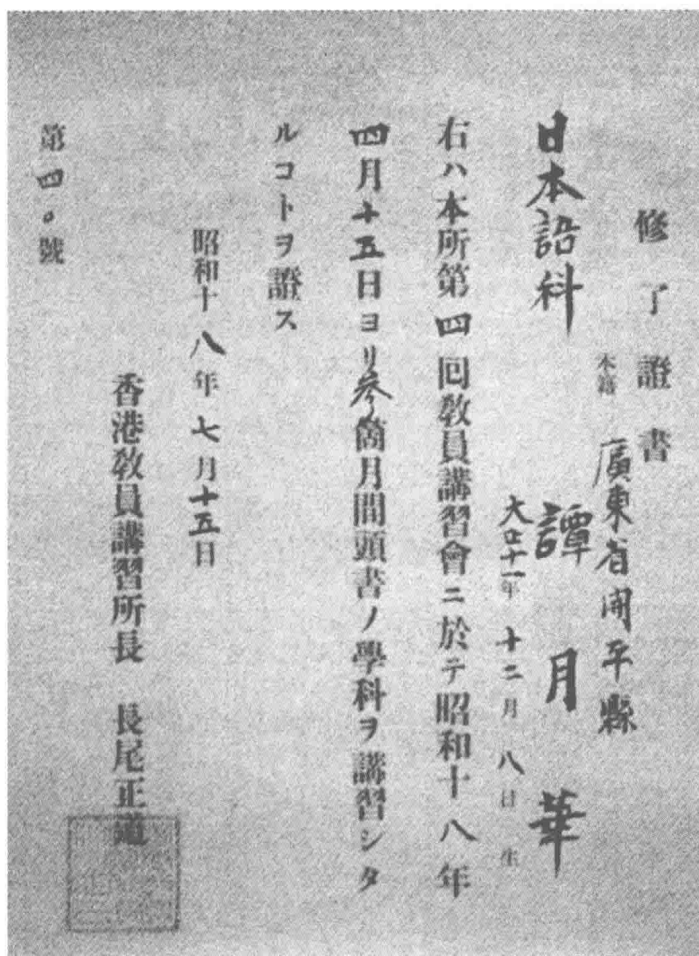 修了證書
本籍 廣東省開平縣
日本語科 譚月華
大正十一年十二月八日生
右ハ本所第四回敎員講習會ニ於テ昭和十八年
四月十五日ヨリ參箇月間頭書ノ學科ヲ講習シタ
ルコトヲ證ス
昭和十八年七月十五日
香港敎員講習所長 長尾正道
第四〇號